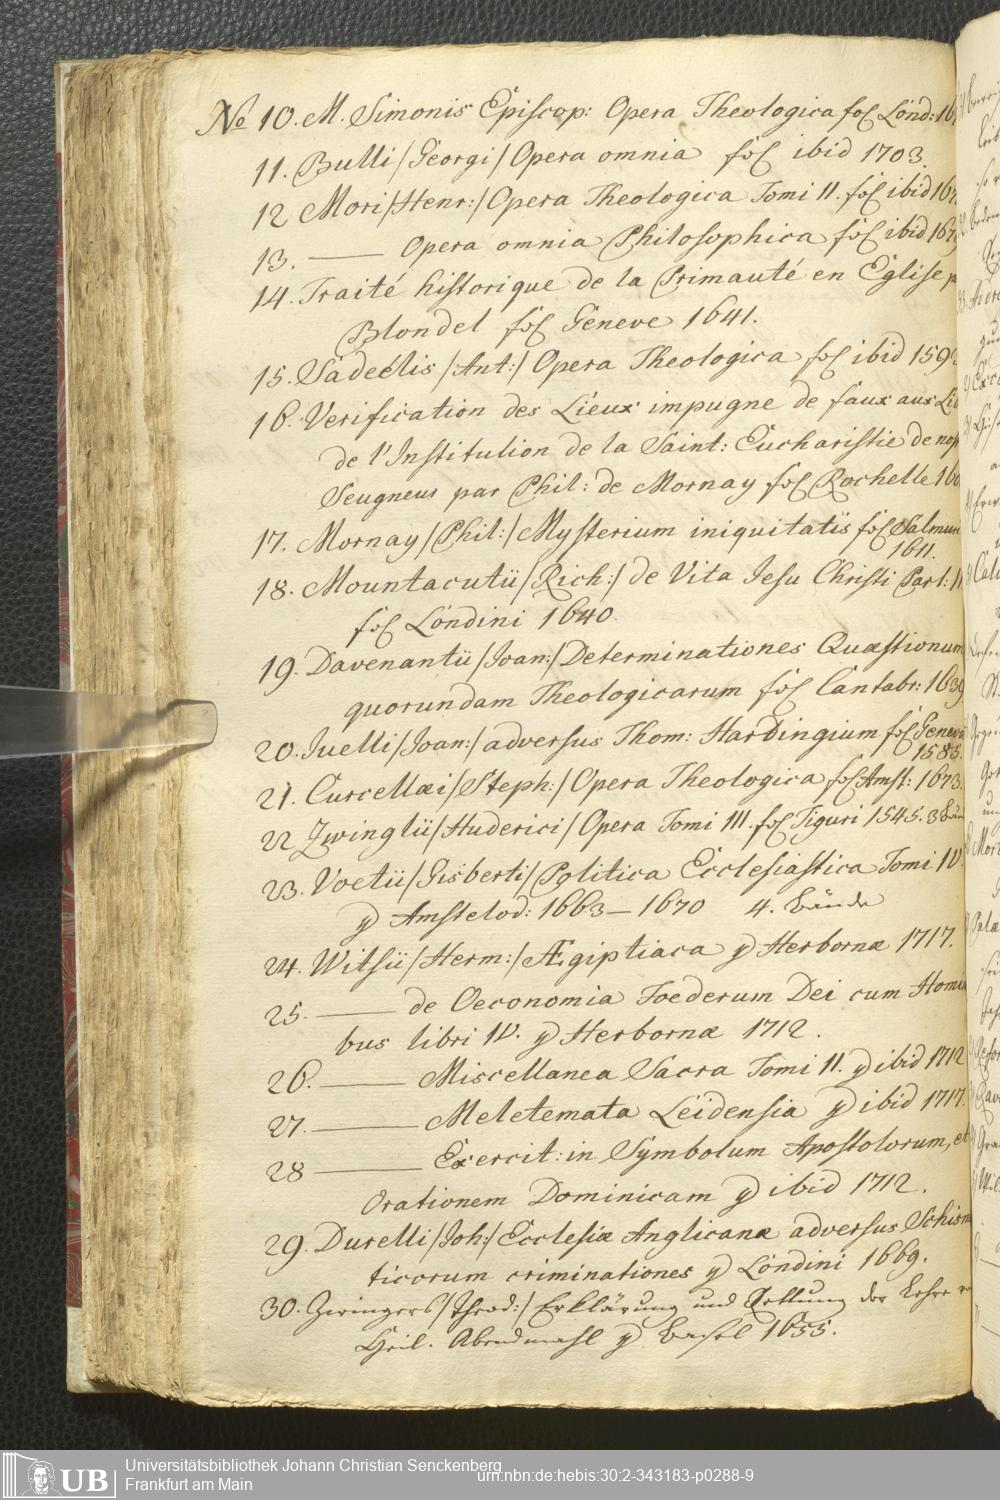 No 10. M. Simonis Episcop: Opera Theologica fol Lond: 16
11. Bulli /Georgi/ Opera omnia fol ibid 1703.
12 Mori /Henr:/ Opera Theologica Tomi II. fol ibid 167
13. —— Opera omnia Philosophica fol ibid 167
14. Traité historique de la Primauté en Eglise p
Blondel fol Geneve 1641.
15. Sadeélis /Ant:/ Opera Theologica fol ibid 159
16. Verification des Lieux impugne de faux aux Li
de l'Institution de la Saint: Eucharistie de no
Seugneur par Phil: de Mornay fol Rochelle 160
17. Mornay /Phil:/ Mysterium iniquitatis fol Salmur
1611.
18. Mountacutii /Rich:/ de Vita Jesu Christi Part: 11
fol Londini 1640.
19. Davenantii /Joan:/ Determinationes Quæstionum
quorundam Theologicarum fol Cantabr: 1639
20. Juelli /Joan:/ adversus Thom: Hardingium fol Genev
1585.
21. Curcellæi /Steph:/ Opera Theologica fol Amst: 1673.
22 Zwinglii /Hulderici/ Opera Tomi III. fol Tiguri 1545. 3 Bän
23. Voetii /Gisberti/ Politica Ecclesiastica Tomi IV.
4 Amstelod: 1663 — 1670 4. Bände
24. Witsii /Herm:/ Ægiptiaca 4 Herbornæ 1717.
25. —— de Oeconomia Foederum Dei cum Homin
bus libri IV. 4 Herbornæ 1712.
26. —— Miscellanea Sacra Tomi II. 4 ibid 1712
27. —— Meletemata Leidensia 4 ibid 1717.
28 —— Exercit: in Symbolum Apostolorum, et
Orationem Dominicam 4 ibid 1712.
29. Durelli /Joh:/ Ecclesiæ Anglicanæ adversus Schism
ticorum criminationes 4 Londini 1669.
30. Zwingers /Theod:/ Erklärung und Rettung der Lehre v
Heil. Abendmahl 4 Basel 1655.
UB
Universitätsbibliothek Johann Christian Senckenberg
Frankfurt am Main
urn:nbn:de:hebis:30:2-343183-p0288-9